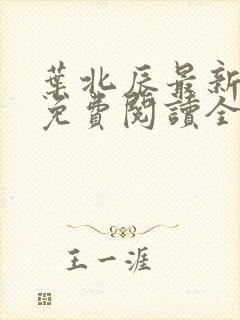 葉北辰最新
免費閱讀全
王一涯